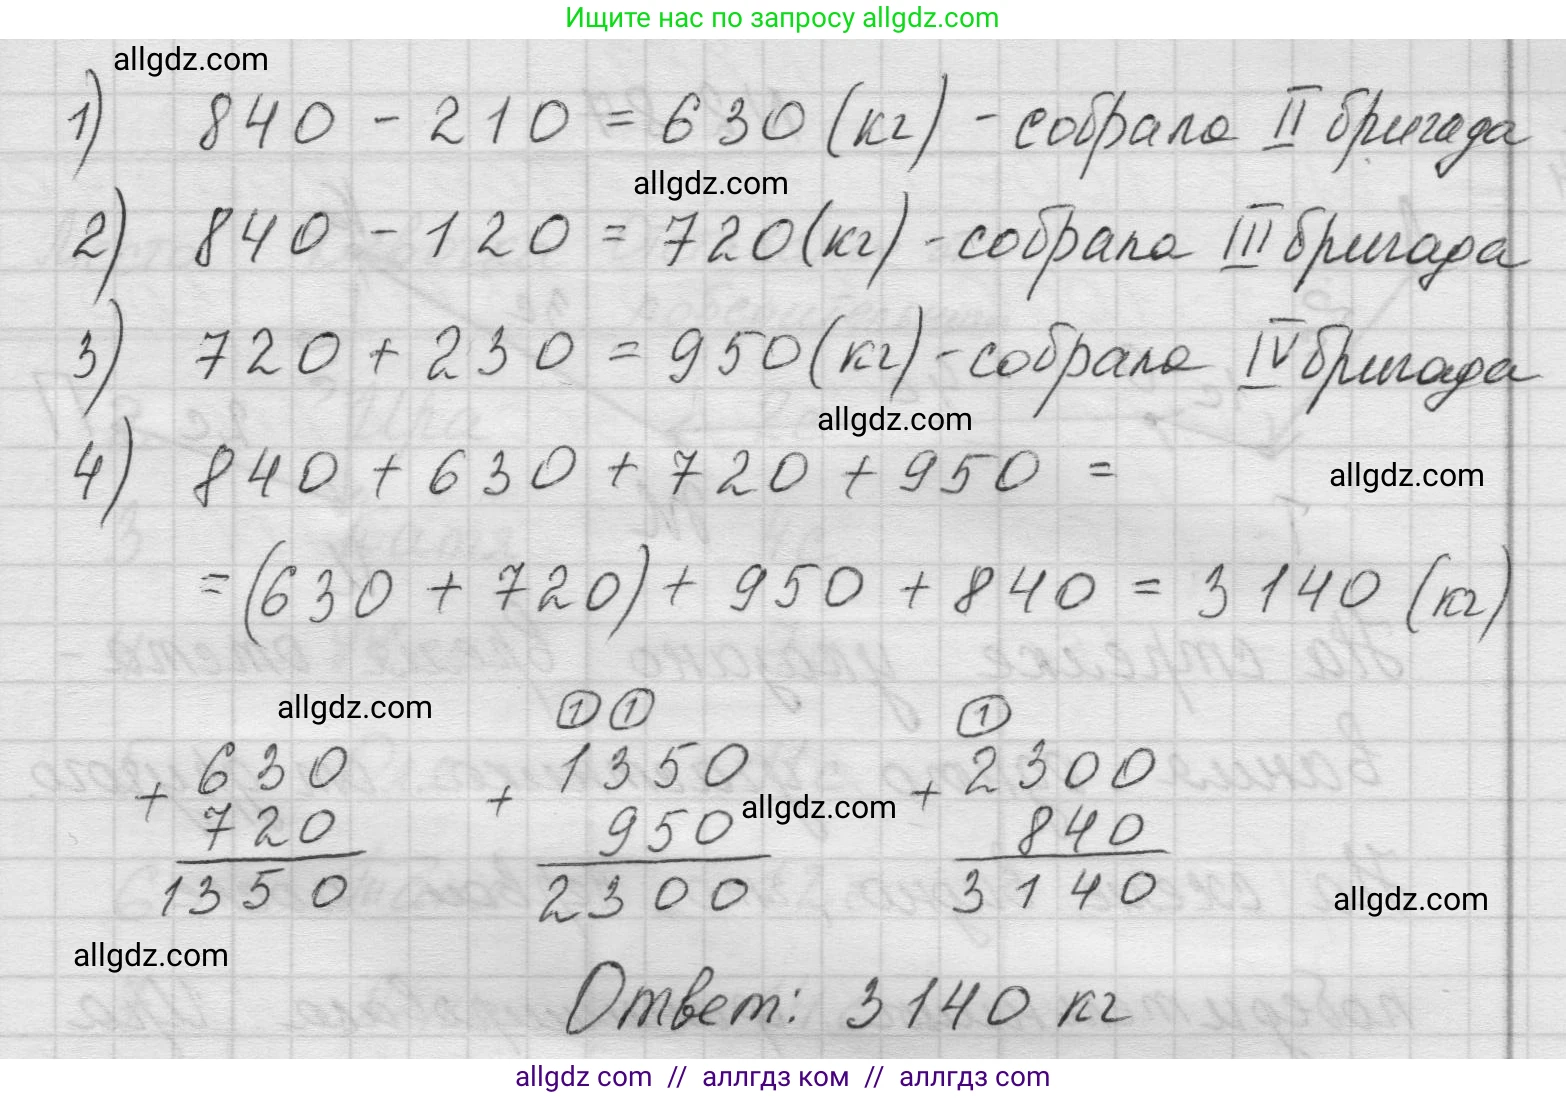 Ищите нас по запросу allgdz.com
allgdz.com
1) 840 - 210 = 630 (кг) - собрала II бригада
allgdz.com
2) 840 - 120 = 720 (кг) - собрала III бригада
3) 720 + 230 = 950 (кг) - собрала IV бригада
allgdz.com
4) 840 + 630 + 720 + 950 =
allgdz.com
= (630 + 720) + 950 + 840 = 3140 (кг)
allgdz.com
1 1
1
+ 630
720
1350
+ 1350
950
2300
allgdz.com
+ 2300
840
3140
allgdz.com
allgdz.com
Ответ: 3140 кг
allgdz com // аллгдз ком // аллгдз com